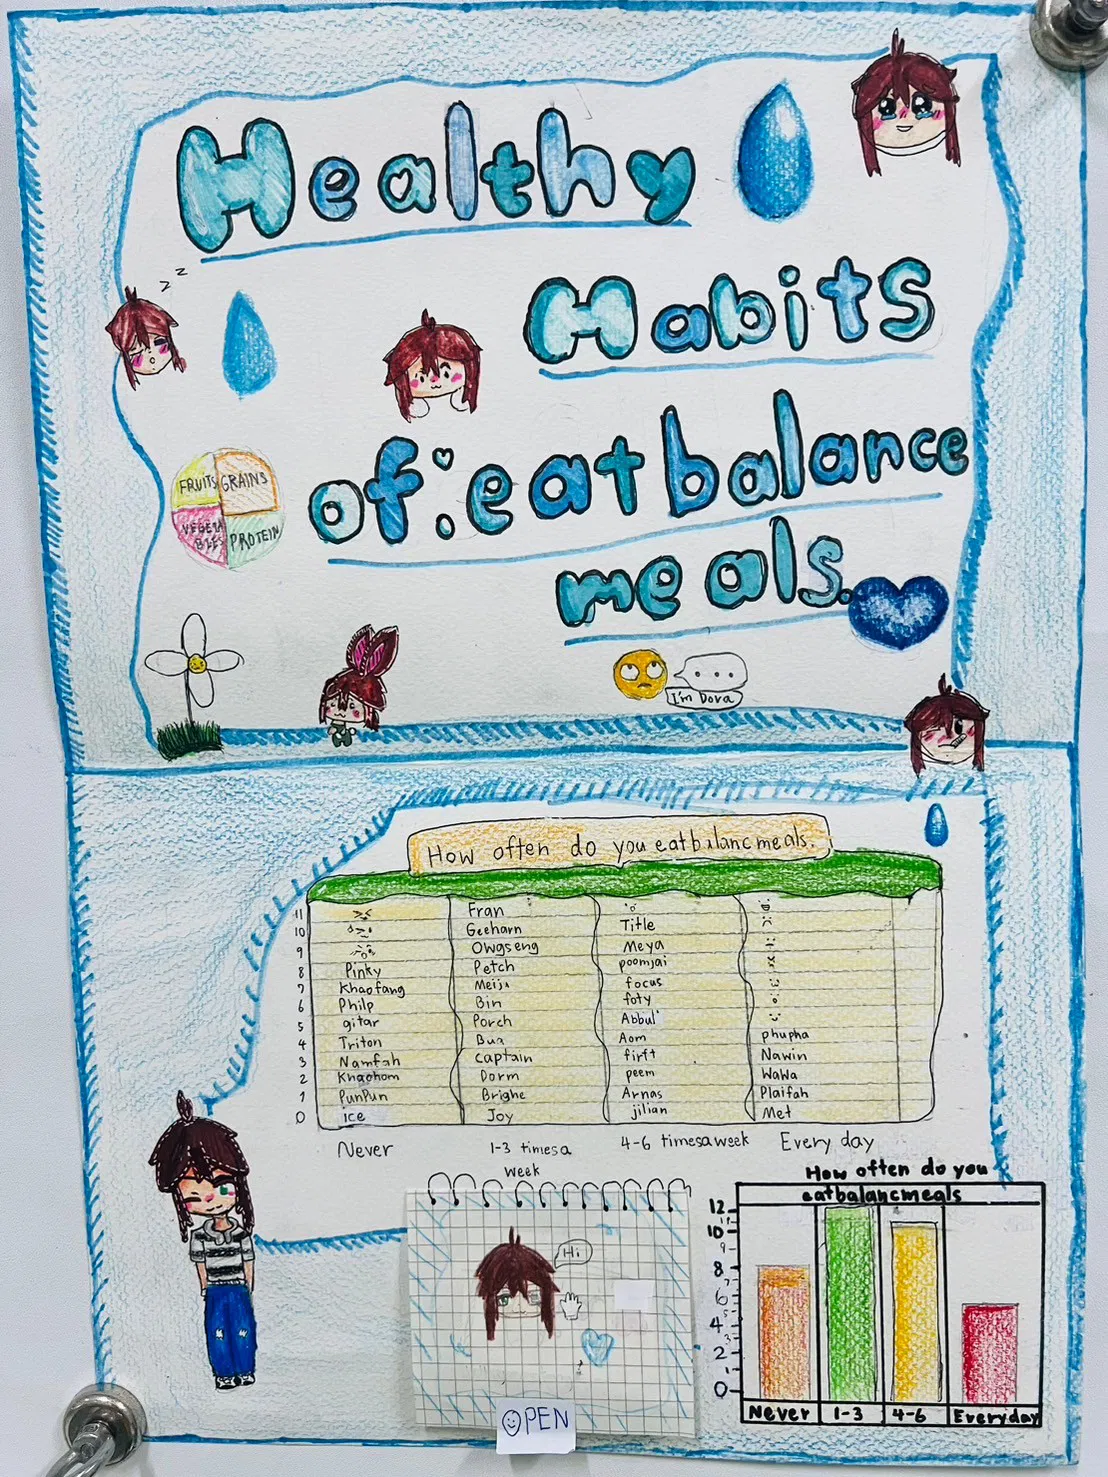 Healthy
Habits
of: eat balance
meals.
z z
FRUITS GRAINS
VEGETA
BLES PROTEIN
...
I'm Dora
How often do you eat balanc meals.
11 Fran
10 Geeharn Title
9 Owgseng Meya
8 Pinky Petch poomjai
7 Khaofang Meiji focus
6 Philp Bin foty
5 gitar Porch Abbul
4 Triton Bua Aom phupha
3 Namfah captain firft Nawin
2 Khaohom Dorm peem WaWa
1 PunPun Brighe Arnas Plaifah
0 ice Joy jilian Met
Never 1-3 times a week 4-6 times a week Every day
Hi
OPEN
How often do you
eat balanc meals
12
11
10
9
8
7
6
5
4
3
2
1
0
Never 1-3 4-6 Everyday